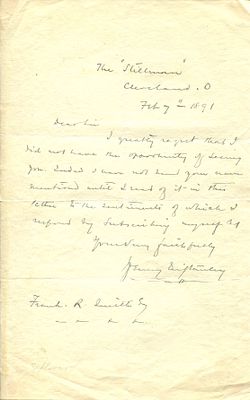 The "Stillman"
Cleveland. O
Feb 7th 1891
Dear Sir
I greatly regret that I
did not have the opportunity of seeing
you. Indeed I have not seen your name
mentioned until I read of it in this
letter to the sentiments of which I
respond by subscribing myself as
Yours very faithfully
Frank. R. Smith Esq